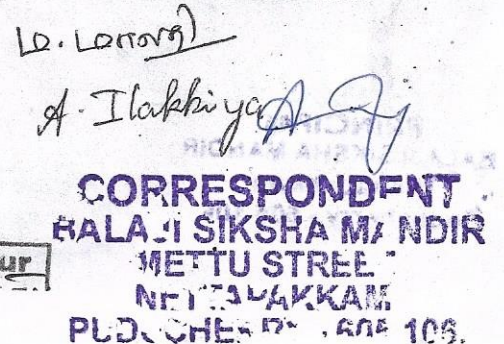 ம. மாாதி
A. Ilakkiya
CORRESPONDENT
BALAJI SIKSHA MANDIR
METTU STREET
NETTAPAKKAM
PUDUCHERRY - 605 106.
ur